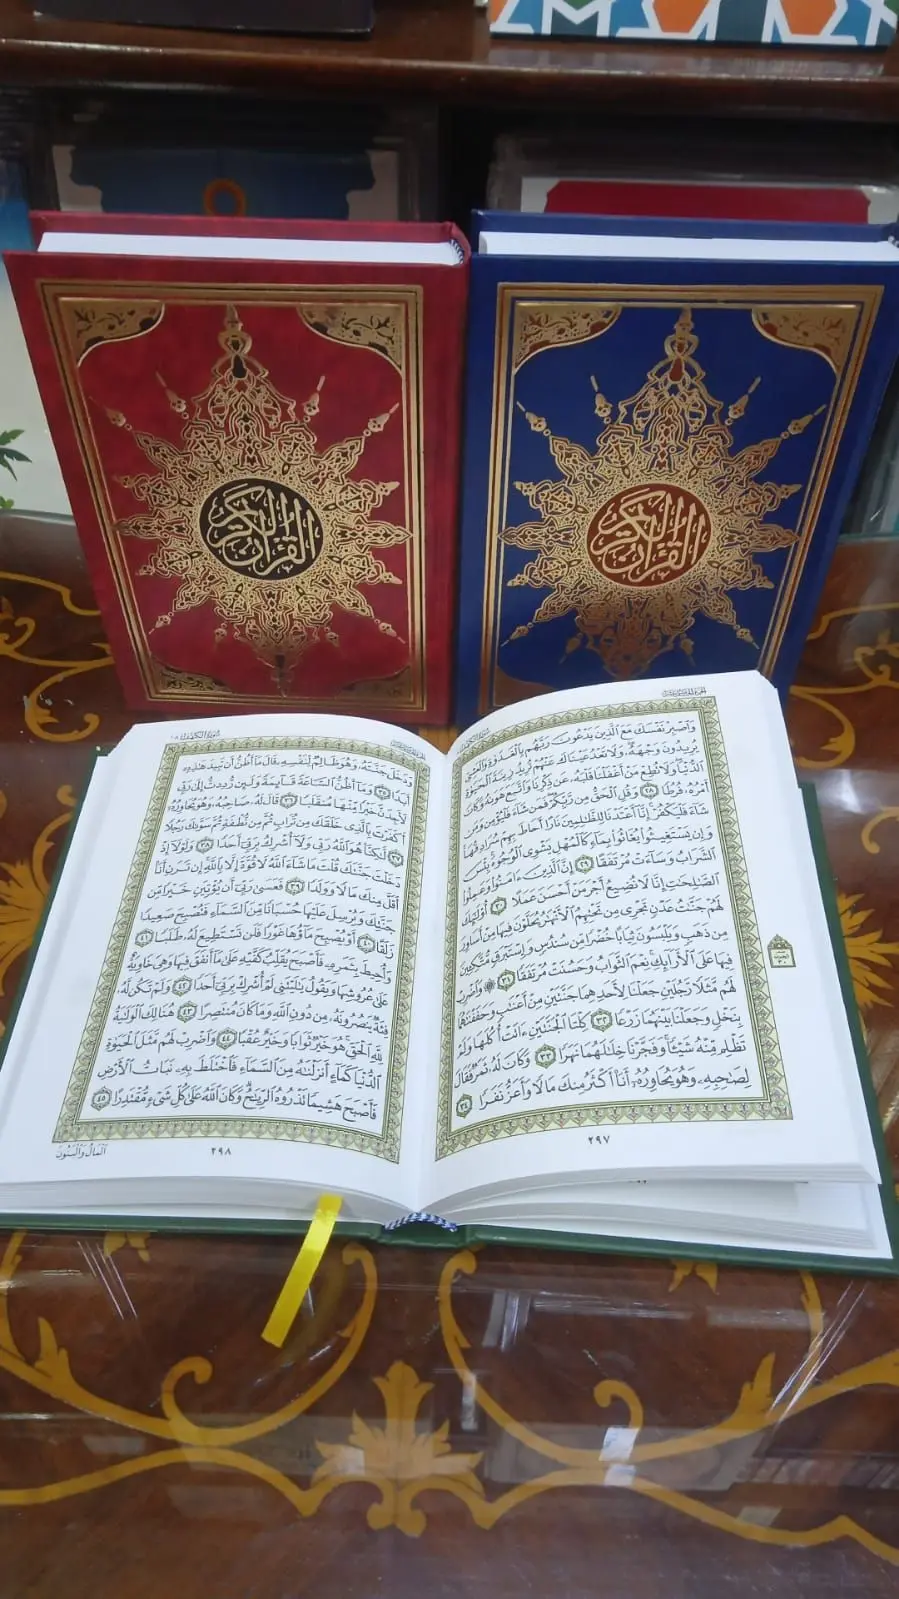 القرآن الكريم
القرآن الكريم
وَٱصْبِرْ نَفْسَكَ مَعَ ٱلَّذِينَ يَدْعُونَ رَبَّهُم بِٱلْغَدَوٰةِ وَٱلْعَشِىِّ
يُرِيدُونَ وَجْهَهُۥ وَلَا تَعْدُ عَيْنَاكَ عَنْهُمْ تُرِيدُ زِينَةَ ٱلْحَيَوٰةِ
ٱلدُّنْيَا وَلَا تُطِعْ مَنْ أَغْفَلْنَا قَلْبَهُۥ عَن ذِكْرِنَا وَٱتَّبَعَ هَوَىٰهُ وَكَانَ
أَمْرُهُۥ فُرُطًا ٢٨ وَقُلِ ٱلْحَقُّ مِن رَّبِّكُمْ فَمَن شَآءَ فَلْيُؤْمِن وَمَن
شَآءَ فَلْيَكْفُرْ إِنَّآ أَعْتَدْنَا لِلظَّٰلِمِينَ نَارًا أَحَاطَ بِهِمْ سُرَادِقُهَا
وَإِن يَسْتَغِيثُوا۟ يُغَاثُوا۟ بِمَآءٍ كَٱلْمُهْلِ يَشْوِى ٱلْوُجُوهَ بِئْسَ
ٱلشَّرَابُ وَسَآءَتْ مُرْتَفَقًا ٢٩ إِنَّ ٱلَّذِينَ ءَامَنُوا۟ وَعَمِلُوا۟
ٱلصَّٰلِحَٰتِ إِنَّا لَا نُضِيعُ أَجْرَ مَنْ أَحْسَنَ عَمَلًا ٣٠ أُو۟لَٰٓئِكَ
لَهُمْ جَنَّٰتُ عَدْنٍ تَجْرِى مِن تَحْتِهِمُ ٱلْأَنْهَٰرُ يُحَلَّوْنَ فِيهَا مِنْ أَسَاوِرَ
مِن ذَهَبٍ وَيَلْبَسُونَ ثِيَابًا خُضْرًا مِّن سُندُسٍ وَإِسْتَبْرَقٍ مُّتَّكِـِٔينَ
فِيهَا عَلَى ٱلْأَرَآئِكِ نِعْمَ ٱلثَّوَابُ وَحَسُنَتْ مُرْتَفَقًا ٣١ ۞ وَٱضْرِبْ
لَهُم مَّثَلًا رَّجُلَيْنِ جَعَلْنَا لِأَحَدِهِمَا جَنَّتَيْنِ مِنْ أَعْنَٰبٍ وَحَفَفْنَٰهُمَا
بِنَخْلٍ وَجَعَلْنَا بَيْنَهُمَا زَرْعًا ٣٢ كِلْتَا ٱلْجَنَّتَيْنِ ءَاتَتْ أُكُلَهَا وَلَمْ
تَظْلِم مِّنْهُ شَيْـًٔا وَفَجَّرْنَا خِلَٰلَهُمَا نَهَرًا ٣٣ وَكَانَ لَهُۥ ثَمَرٌ فَقَالَ
لِصَٰحِبِهِۦ وَهُوَ يُحَاوِرُهُۥٓ أَنَا۠ أَكْثَرُ مِنكَ مَالًا وَأَعَزُّ نَفَرًا ٣٤
٢٩٧
سُورَةُ الكَهْفِ ١٨
وَدَخَلَ جَنَّتَهُۥ وَهُوَ ظَالِمٌ لِّنَفْسِهِۦ قَالَ مَآ أَظُنُّ أَن تَبِيدَ هَٰذِهِۦٓ
أَبَدًا ٣٥ وَمَآ أَظُنُّ ٱلسَّاعَةَ قَآئِمَةً وَلَئِن رُّدِدتُّ إِلَىٰ رَبِّى
لَأَجِدَنَّ خَيْرًا مِّنْهَا مُنقَلَبًا ٣٦ قَالَ لَهُۥ صَاحِبُهُۥ وَهُوَ يُحَاوِرُهُۥٓ
أَكَفَرْتَ بِٱلَّذِى خَلَقَكَ مِن تُرَابٍ ثُمَّ مِن نُّطْفَةٍ ثُمَّ سَوَّىٰكَ رَجُلًا
٣٧ لَّٰكِنَّا۠ هُوَ ٱللَّهُ رَبِّى وَلَآ أُشْرِكُ بِرَبِّىٓ أَحَدًا ٣٨ وَلَوْلَآ إِذْ
دَخَلْتَ جَنَّتَكَ قُلْتَ مَا شَآءَ ٱللَّهُ لَا قُوَّةَ إِلَّا بِٱللَّهِ إِن تَرَنِ أَنَا۠
أَقَلَّ مِنكَ مَالًا وَوَلَدًا ٣٩ فَعَسَىٰ رَبِّىٓ أَن يُؤْتِيَنِ خَيْرًا مِّن
جَنَّتِكَ وَيُرْسِلَ عَلَيْهَا حُسْبَانًا مِّنَ ٱلسَّمَآءِ فَتُصْبِحَ صَعِيدًا
زَلَقًا ٤٠ أَوْ يُصْبِحَ مَآؤُهَا غَوْرًا فَلَن تَسْتَطِيعَ لَهُۥ طَلَبًا ٤١
وَأُحِيطَ بِثَمَرِهِۦ فَأَصْبَحَ يُقَلِّبُ كَفَّيْهِ عَلَىٰ مَآ أَنفَقَ فِيهَا وَهِىَ خَاوِيَةٌ
عَلَىٰ عُرُوشِهَا وَيَقُولُ يَٰلَيْتَنِى لَمْ أُشْرِكْ بِرَبِّىٓ أَحَدًا ٤٢ وَلَمْ تَكُن لَّهُۥ
فِئَةٌ يَنصُرُونَهُۥ مِن دُونِ ٱللَّهِ وَمَا كَانَ مُنتَصِرًا ٤٣ هُنَالِكَ ٱلْوَلَٰيَةُ
لِلَّهِ ٱلْحَقِّ هُوَ خَيْرٌ ثَوَابًا وَخَيْرٌ عُقْبًا ٤٤ وَٱضْرِبْ لَهُم مَّثَلَ ٱلْحَيَوٰةِ
ٱلدُّنْيَا كَمَآءٍ أَنزَلْنَٰهُ مِنَ ٱلسَّمَآءِ فَٱخْتَلَطَ بِهِۦ نَبَاتُ ٱلْأَرْضِ
فَأَصْبَحَ هَشِيمًا تَذْرُوهُ ٱلرِّيَٰحُ وَكَانَ ٱللَّهُ عَلَىٰ كُلِّ شَىْءٍ مُّقْتَدِرًا ٤٥
ٱلْمَالُ وَٱلْبَنُونَ
٢٩٨